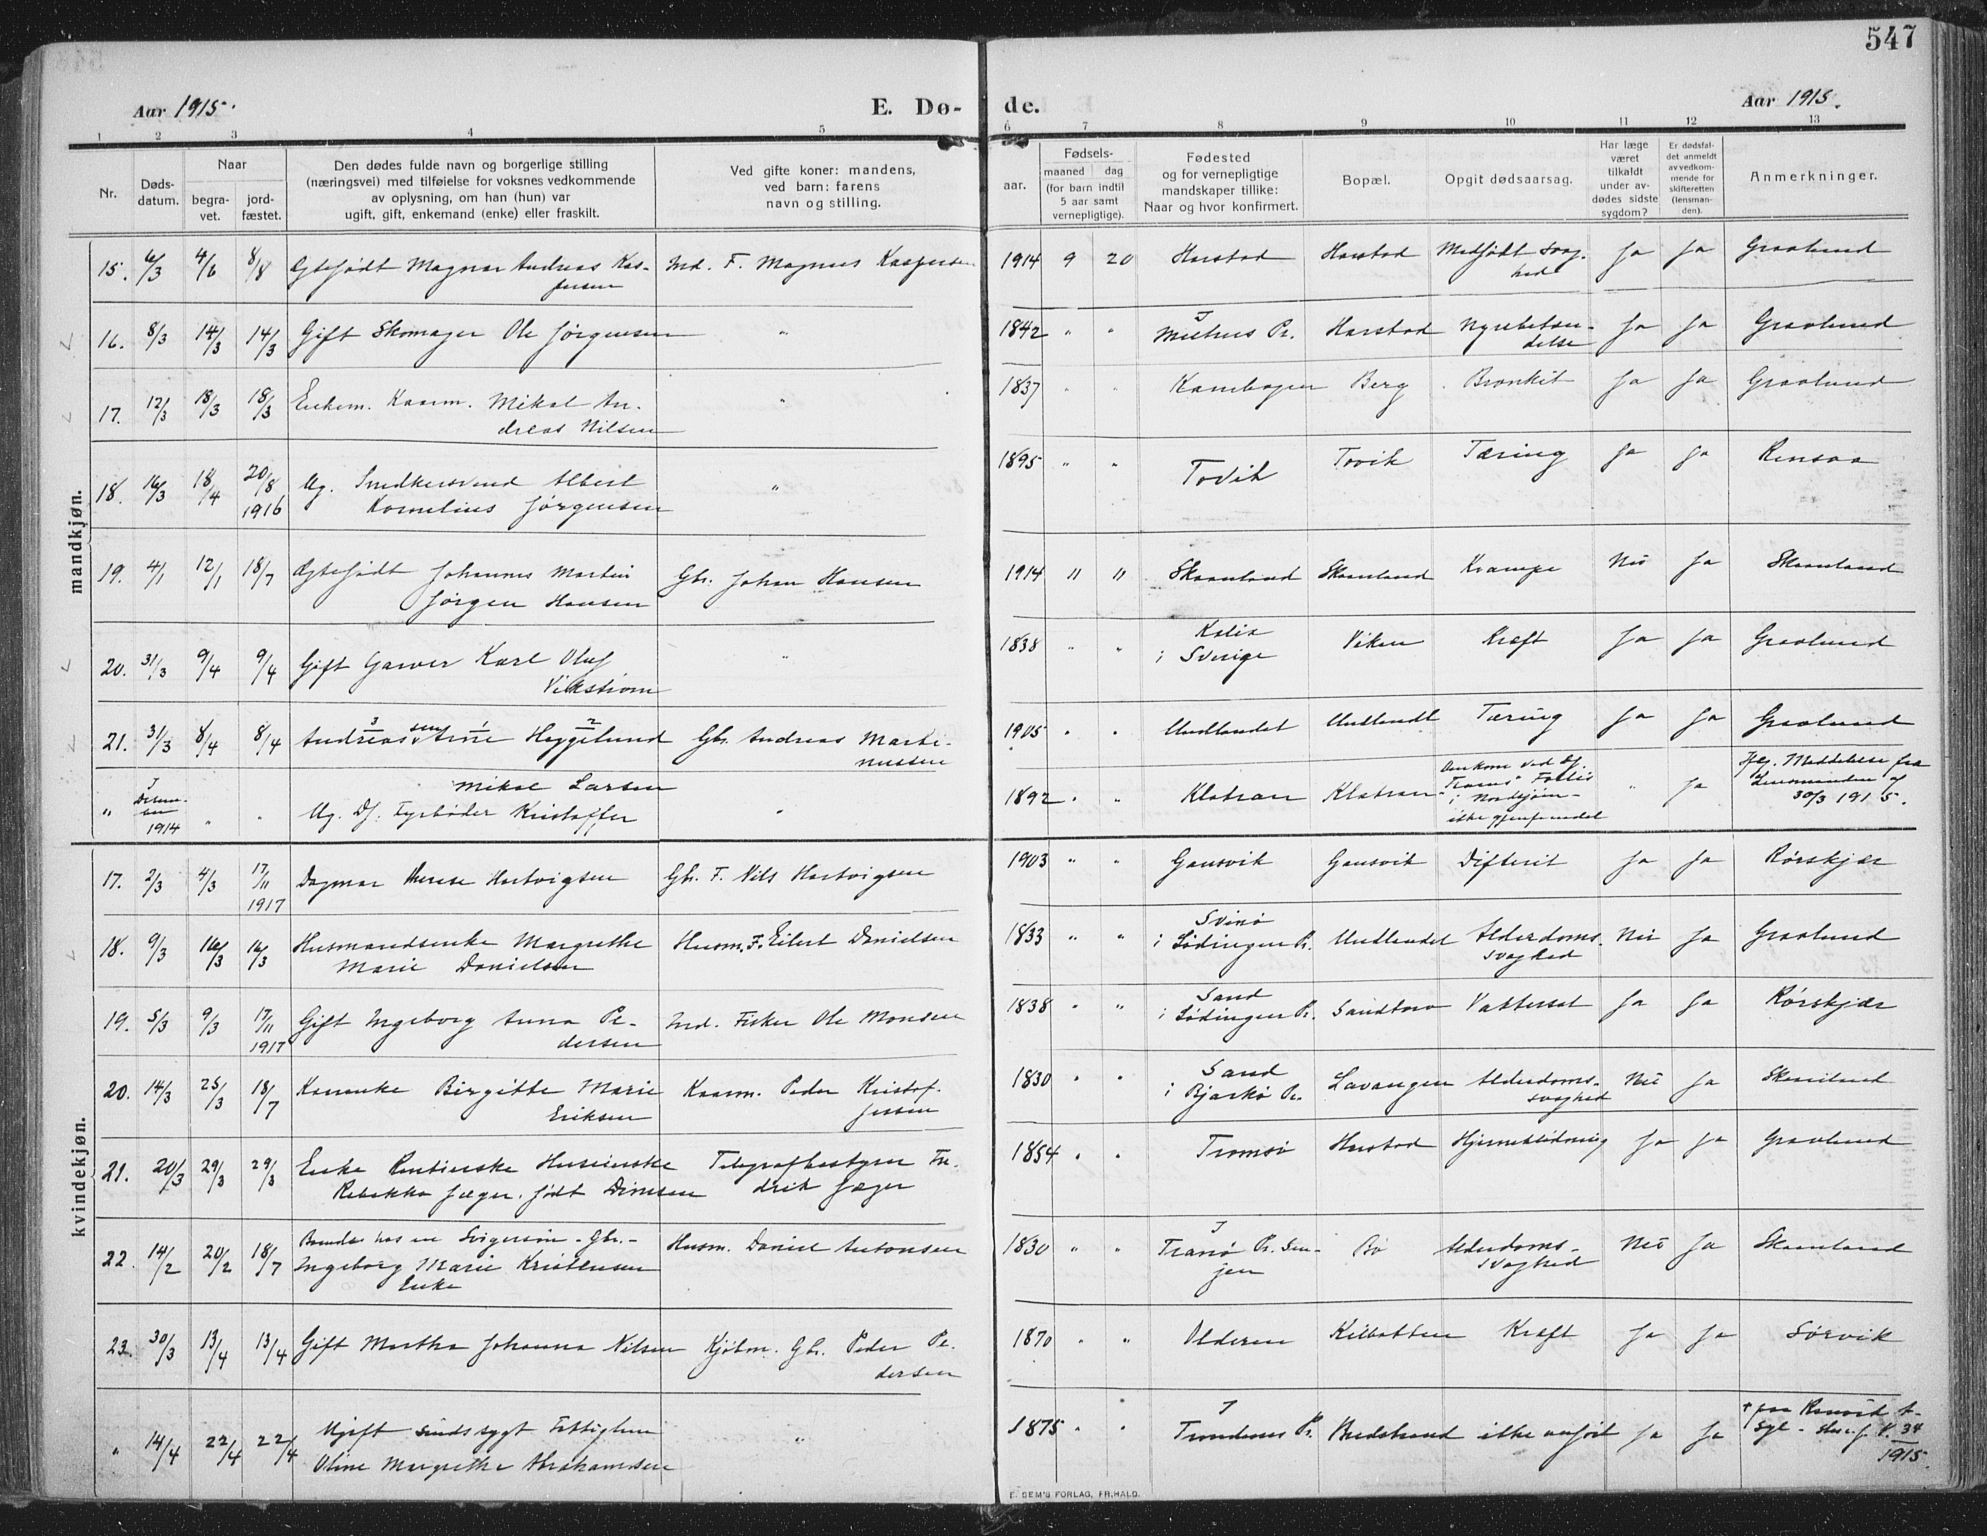 547
Aar 1915. E. Dø- de. Aar 1915.
1 2 3 4 5 6 7 8 9 10 11 12 13
Nr.
Døds-
datum.
Naar
begra-
vet.
jord-
fæstet.
Den dødes fulde navn og borgerlige stilling
(næringsvei) med tilføielse for voksnes vedkommende
av oplysning, om han (hun) var
ugift, gift, enkemand (enke) eller fraskilt.
Ved gifte koner: mandens,
ved barn: farens
navn og stilling.
aar.
Fødsels-
maaned dag
(for barn indtil
5 aar samt
vernepligtige).
Fødested
og for vernepligtige
mandskaper tillike:
Naar og hvor konfirmert.
Bopæl.
Opgit dødsaarsag.
Har læge
været
tilkaldt
under av-
dødes sidste
sygdom?
Er dødsfal-
det anmeldt
av vedkom-
mende for
skifteretten
(lensman-
den).
Anmerkninger.
mandkjøn.
15. 6/3 4/6 8/8 Egtefødt Magnar Andreas Kas- F. Magnus Kaspersen 1914 9 20 Harstad Harstad Medfødt svag- Ja Ja Gravlund
persen hed
16. 8/3 14/3 14/3 Gift Skomager Ole Jørgensen " 1842 " " I Harstad Nyrebetæn- Ja Ja Gravlund
Pr. delse
17. 12/3 18/3 18/3 Enkem. Kaarm. Mikal An- " 1837 " " Kanebogen Berg Bronkit Ja Ja Gravlund
dreas Nilsen
18. 16/3 18/4 20/8 1916 Ug. Snedkersvend Albert " 1895 " " Tovik Tovik Tæring Ja Ja Rensaa
Kornelius Jørgensen
19. 4/1 12/1 18/7 Ægtefødt Johannes Martin Gbr. Johan Hansen 1914 " " Skaanland Skaanland Krampe Nei Ja Skaanland
Jørgen Hansen
20. 31/3 9/4 9/4 Gift Garver Karl Oluf " 1838 " " Kalix Viken Kræft Ja Ja Gravlund
Vikstrøm i Sverige
21. 31/3 8/4 8/4 Andreassen Arne Heggelund Gbr. Andreas Marti- 1905 " " Undlandet Undlandet Tæring Ja Ja Gravlund
3 1 2 nussen
" I Desem- ber 1914 " " Mikal Larsen " 1892 " " Klatran Klatran Omkom ved Df. " Ja Iflg. Meddelelse fra
Ug. Df. Fyrbøder Kristoffer i Nordsjøen - Lensmanden af
ikke gjenfundet 30/3 1915.
kvindekjøn.
17. 2/3 4/3 17/11 1917 Dagmar Therese Hartvigsen Gbr. F. Nils Hartvigsen 1903 " " Gausvik Gausvik Difterit Ja Ja Rørskjær
18. 9/3 16/3 16/3 Husmandsenke Margrethe Husm. F. Eilert Danielsen 1833 " " Svinø Undlandet Alderdoms- Nei Ja Gravlund
Marie Danielsen i Lødingen Pr. svaghed
19. 5/3 9/3 17/11 1917 Gift Ingeborg Anna Pe- Md. Fisker Ole Monsen 1838 " " Sand Sandtorv Vattersot Ja Ja Rørskjær
dersen i Lødingen Pr.
20. 14/3 25/3 18/7 Birgitte Marie Kaarm. Peder Kristof- 1830 " " Sand Lavangen Alderdoms- Nei Ja Skaanland
Eriksen fersen i Bjarkø Pr. svaghed
21. 20/3 29/3 29/3 Enke Telegrafbestyrer Fre- 1854 " " Tromsø Harstad Hjerneblødning Ja Ja Gravlund
Rebekka Jæger, født Dinesen drik Jæger
22. 14/2 20/2 18/7 hos en Svigersøn - Gbr. - Husm. Daniel Antonsen 1830 " " I Bø Alderdoms- Nei Ja Skaanland
Ingeborg Marie Kristensen Tranø Pr. Sen- svaghed
Enke jen
23. 30/3 13/4 13/4 Gift Martha Johanna Nilsen Kjøbm. Gbr. Peder Pe- 1870 " " Olderen Kilbotten Kræft Ja Ja Sørvik
dersen
" 14/4 22/4 22/4 Ugift sindssygt Fattiglem " 1875 " " I Bredstrand ikke anført Ja Ja † paa
Oline Margrethe Abrahamsen Trondenes Pr. 1915.
E. SEM'S FORLAG, FR.HALD.